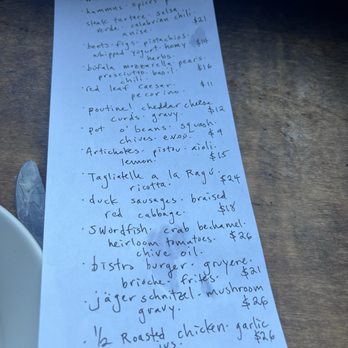 · hummus · spices
· steak tartare · salsa
verde · calabrian chili ·
anise · $21
· beets · figs · pistachios ·
whipped yogurt · honey
herbs. $14
· bufala mozzarella · pears ·
prosciutto · basil ·
chili · $16
· red leaf caesar ·
pecorino · $11
· poutine! cheddar cheese
curds · gravy · $12
· pot o' beans · squash ·
chives · evoo · $9
· Artichokes · pistou · aioli ·
lemon · $15
· Tagliatelle a la Ragú ·
ricotta · $24
· duck sausages · braised
red cabbage · $18
· Swordfish · crab bechamel ·
heirloom tomatoes ·
chive oil. $26
· bistro burger · gruyere ·
brioche · frites · $21
· jäger schnitzel · mushroom
gravy · $26
· ½ Roasted chicken · garlic
$26